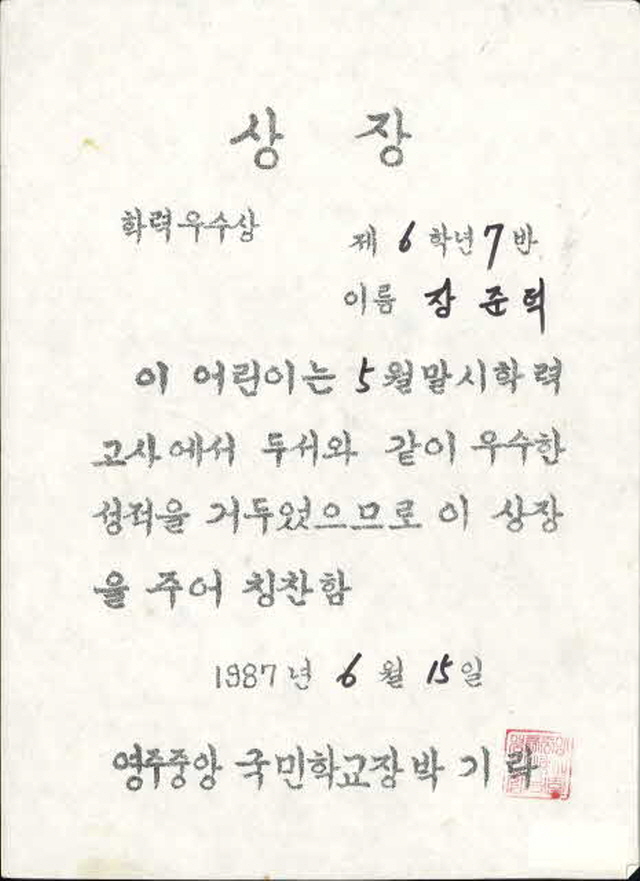 상 장
학력우수상
제 6 학년 7 반
이름 장 준혁
이 어린이는 5월말시학력
고사에서 두서와 같이 우수한
성적을 거두었으므로 이 상장
을 주어 칭찬함
1987년 6월 15일
영주중앙 국민학교장 박 기 락